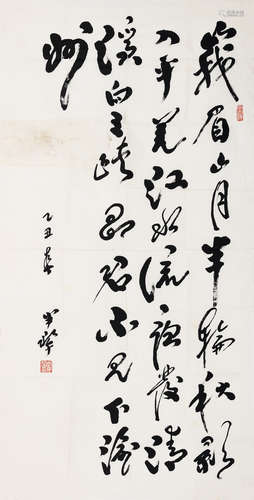 峩眉山月半輪秋影
入平羌江水流夜發清
溪向三峽思君不見下渝
州
乙丑春